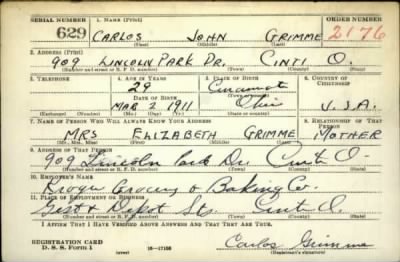 SERIAL NUMBER 1. NAME (Print) ORDER NUMBER
629 CARLOS JOHN GRIMME 2176
(First) (Middle) (Last)
2. ADDRESS (Print)
909 LINCOLN PARK DR. CINTI O.
(Number and street or R. F. D. number) (Town) (County) (State)
3. TELEPHONE 4. AGE IN YEARS 5. PLACE OF BIRTH 6. COUNTRY OF CITIZENSHIP
29 Cincinnati
DATE OF BIRTH (Town or county)
MAR 2 1911 Ohio U.S.A.
(Exchange) (No.) (Mo.) (Day) (Yr.) (State or country)
7. NAME OF PERSON WHO WILL ALWAYS KNOW YOUR ADDRESS 8. RELATIONSHIP OF THAT PERSON
MRS ELIZABETH GRIMME MOTHER
(Mr., Mrs., Miss) (First) (Middle) (Last)
9. ADDRESS OF THAT PERSON
909 Lincoln Park Dr. Cinti O.
(Number and street or R. F. D. number) (Town) (County) (State)
10. EMPLOYER'S NAME
Kroger Grocery & Baking Co.
11. PLACE OF EMPLOYMENT OR BUSINESS
Gest & Depot Sts. Cinti O.
(Number and street or R. F. D. number) (Town) (County) (State)
I AFFIRM THAT I HAVE VERIFIED ABOVE ANSWERS AND THAT THEY ARE TRUE.
REGISTRATION CARD
D. S. S. Form 1 (over) Carlos Grimme
(Registrant's signature)